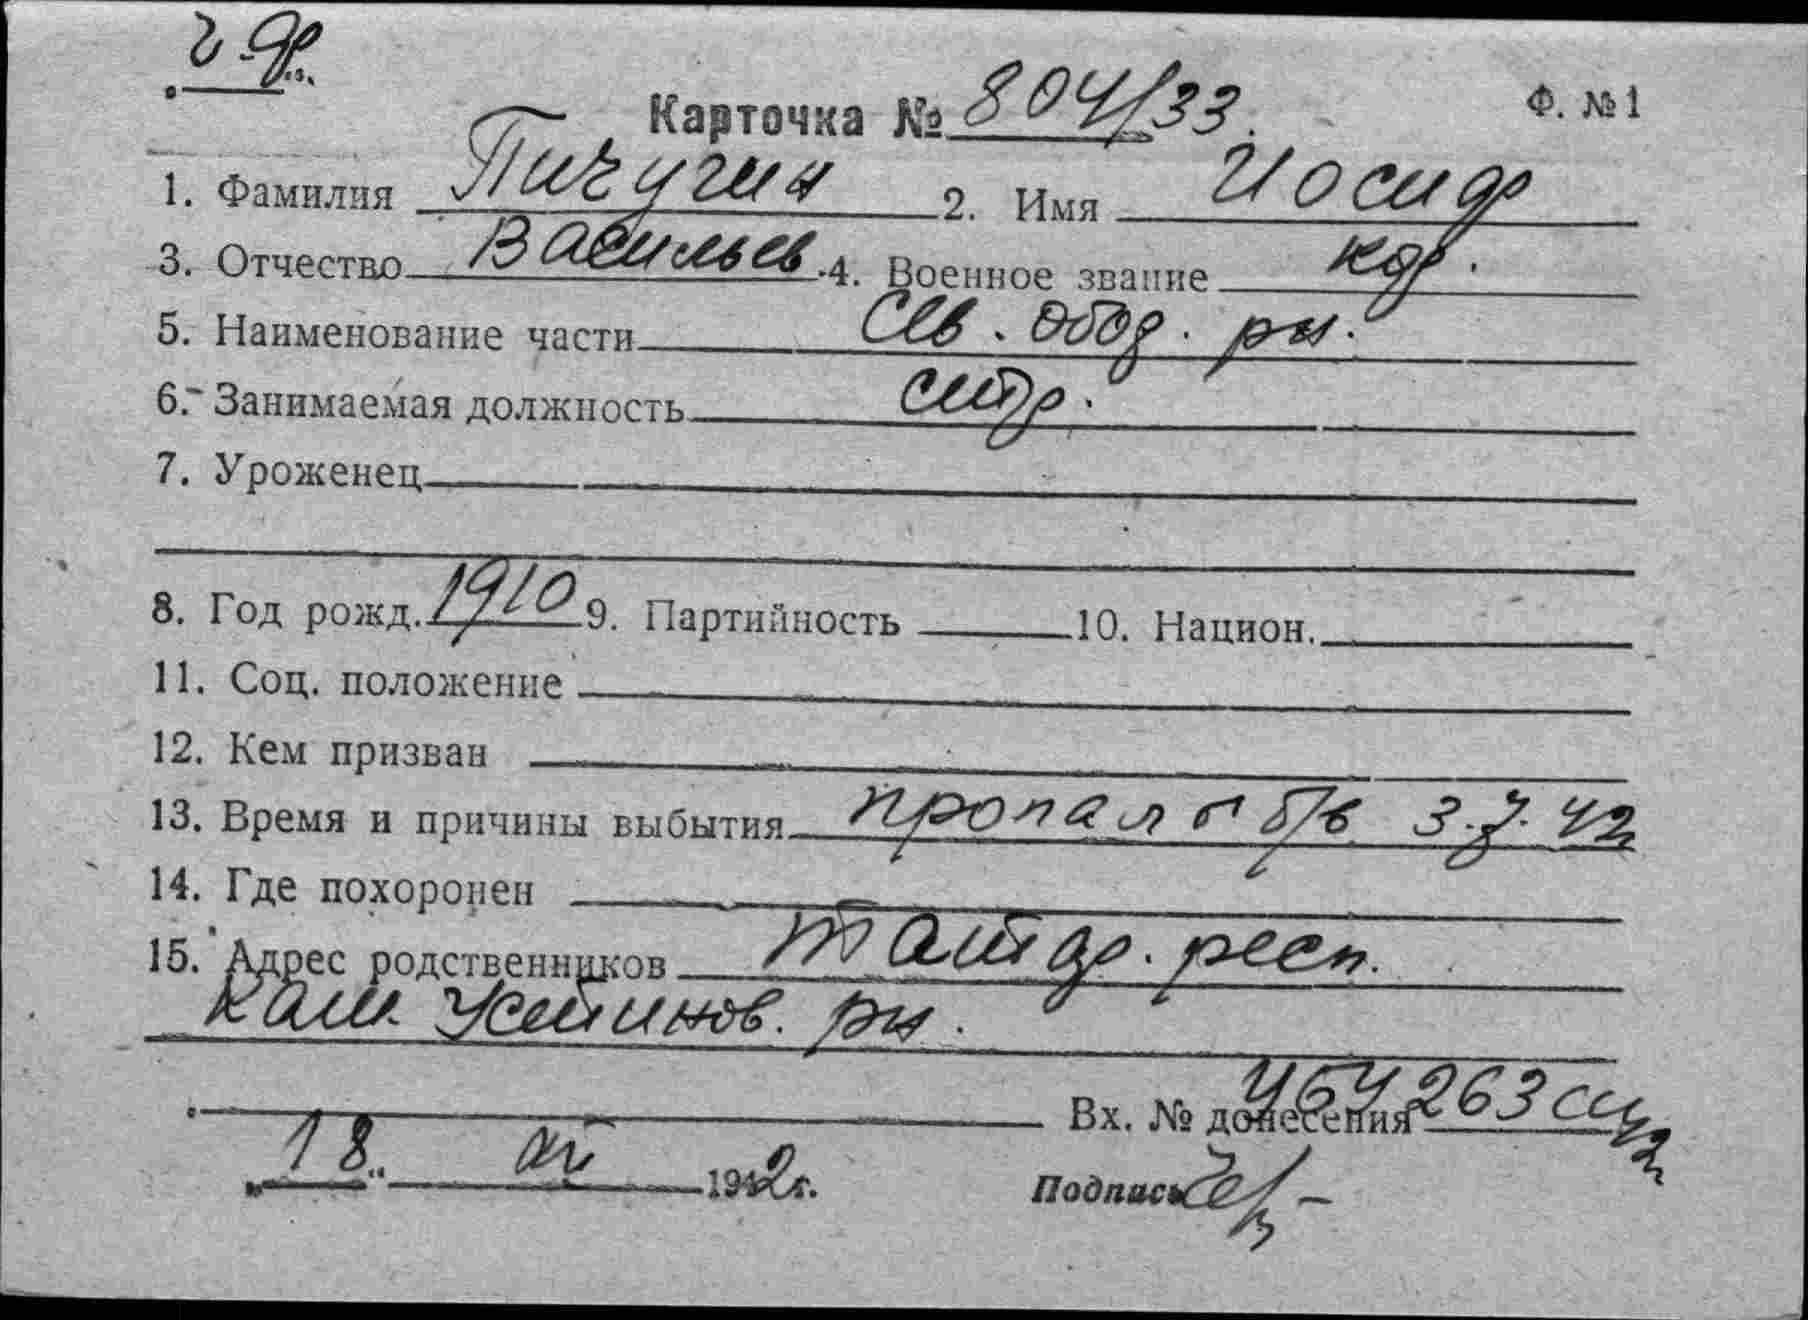 Карточка № 804/33.
Ф. № 1
1. Фамилия Пичугин 2. Имя Иосиф
3. Отчество Васильев. 4. Военное звание кф.
5. Наименование части Сев. Обор. рн.
6. Занимаемая должность
7. Уроженец
8. Год рожд. 1910 9. Партийность 10. Национ.
11. Соц. положение
12. Кем призван
13. Время и причины выбытия пропал б/в 3.7.42
14. Где похоронен
15. Адрес родственников респ.
Устинов. рн.
Вх. № донесения
18 1942 г.
Подпись